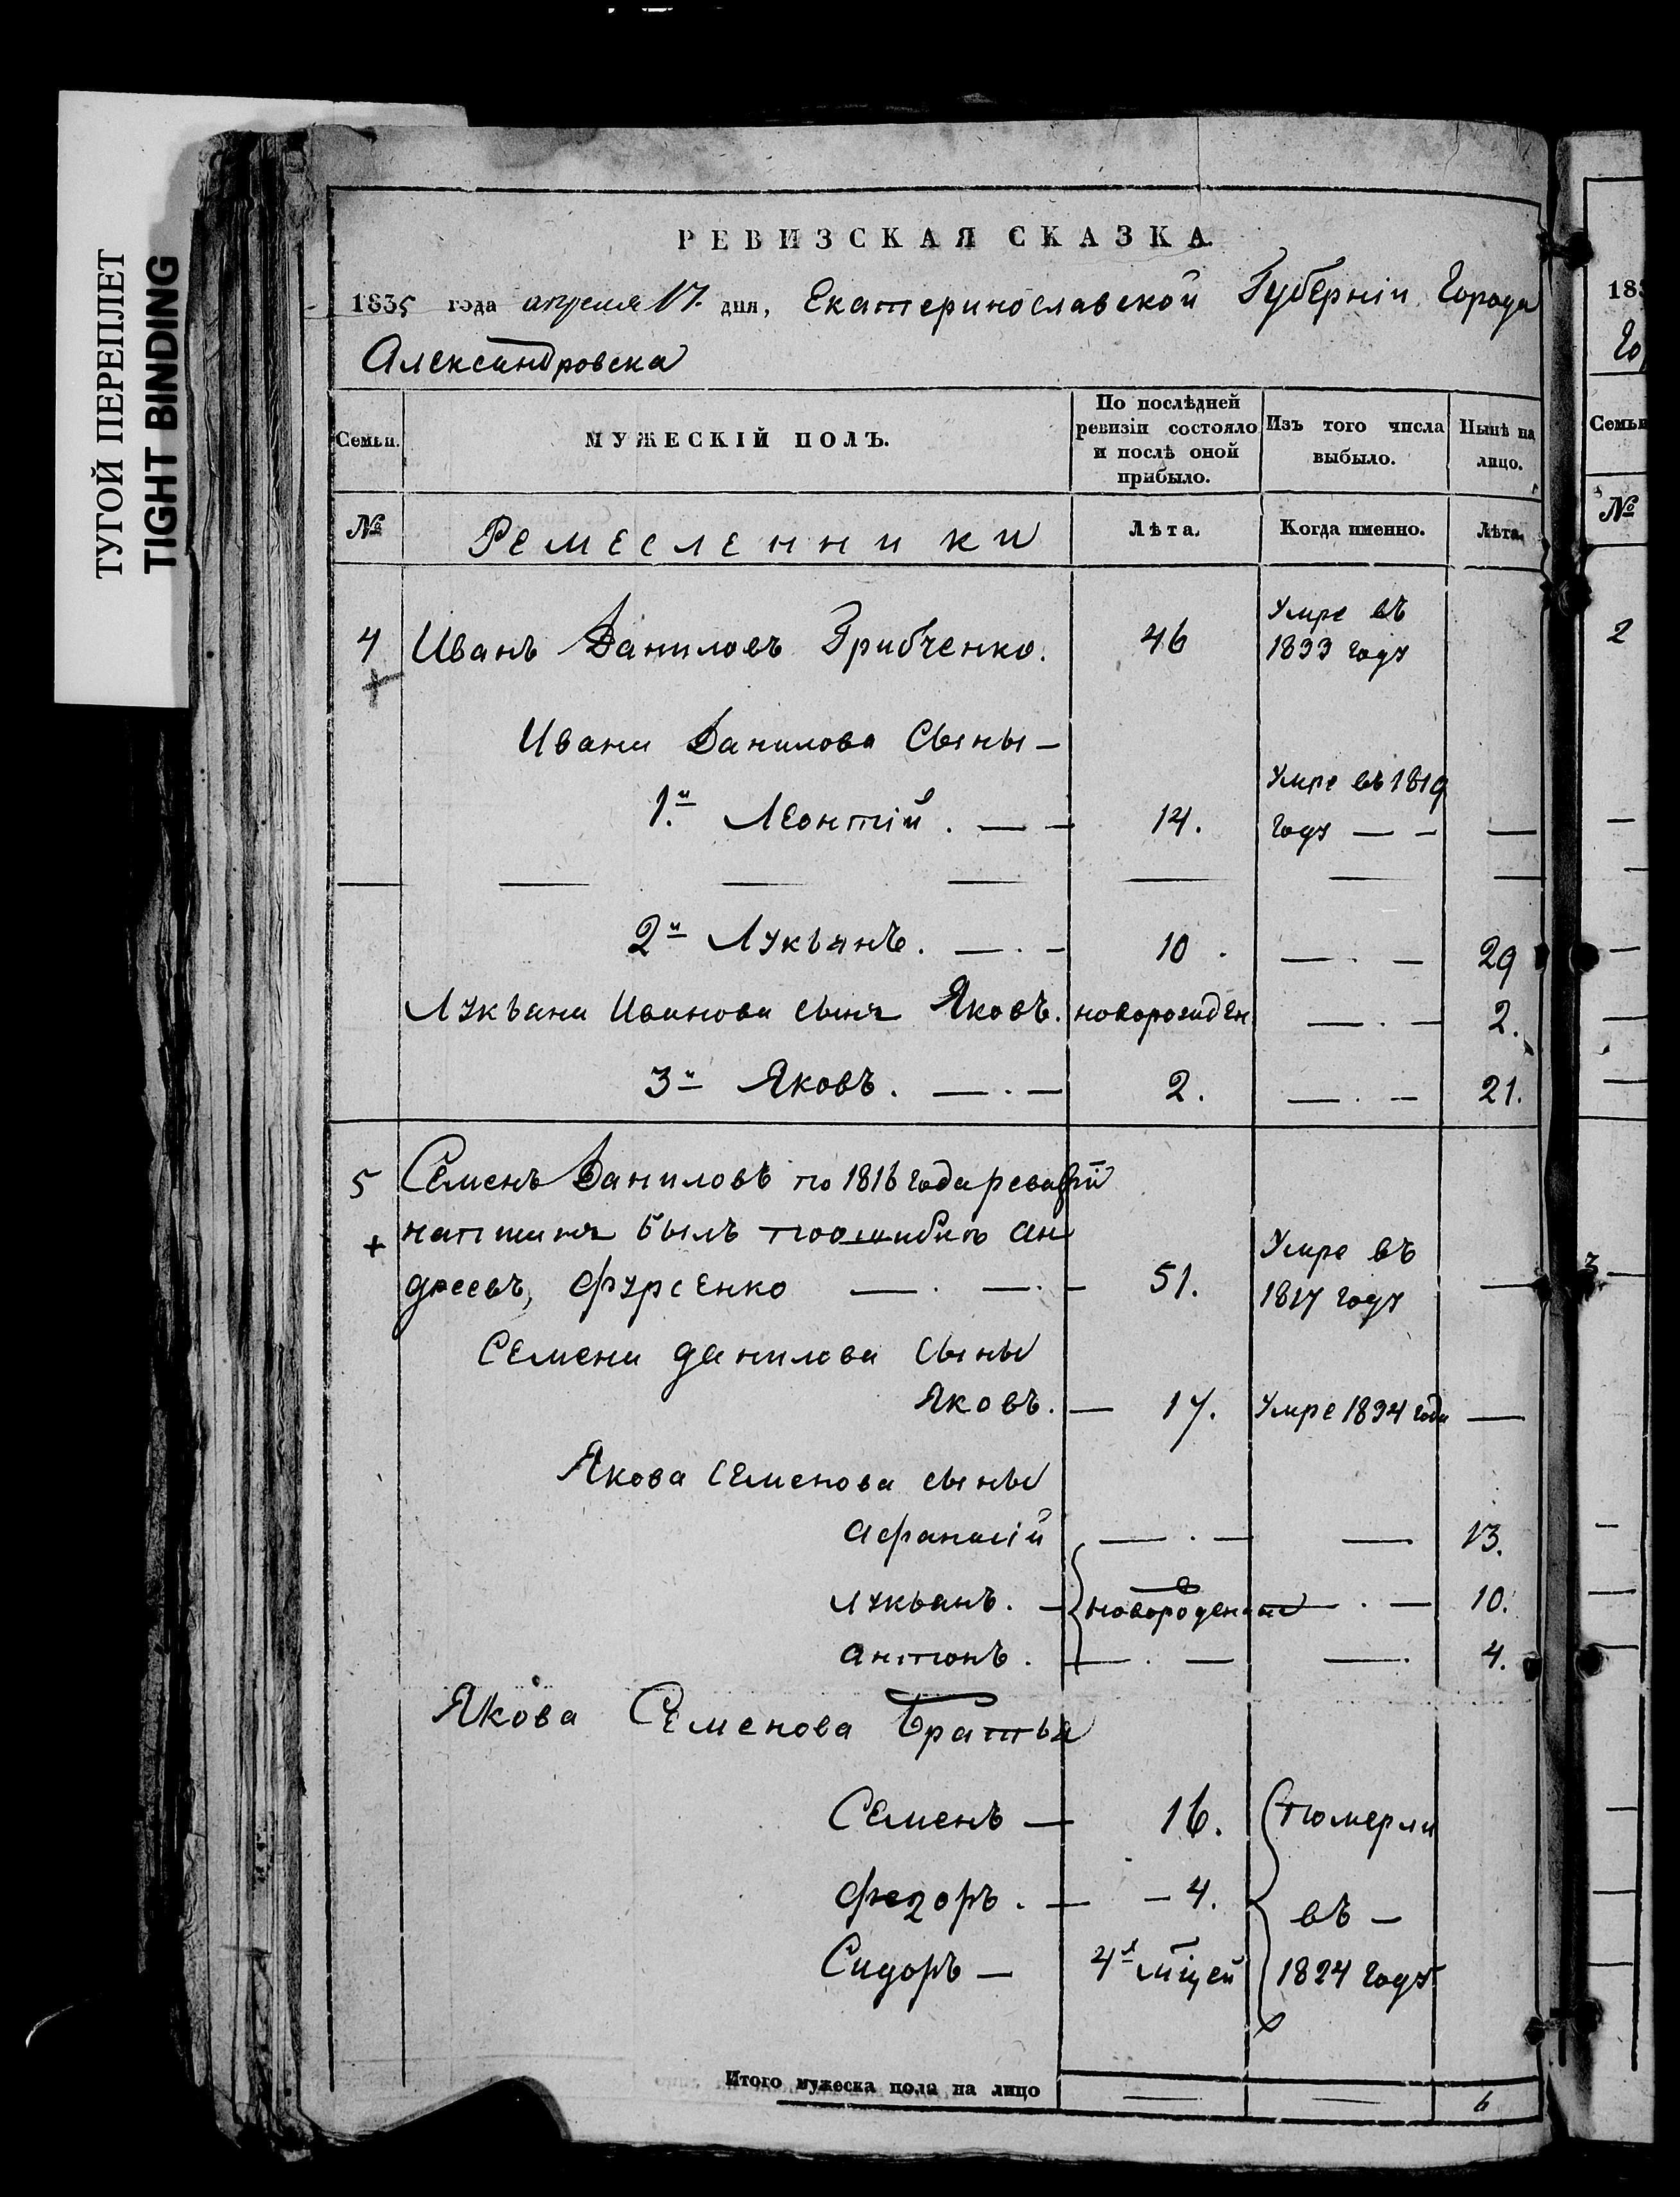 ТУГОЙ ПЕРЕПЛЕТ
TIGHT BINDING
РЕВИЗСКАЯ СКАЗКА.
1835 года апреля 17. дня, Екатеринославской Губерніи Города
Александровска
Семьи.
МУЖЕСКІЙ ПОЛЪ.
По послѣдней ревизіи состояло и послѣ оной прибыло.
Изъ того числа выбыло.
Нынѣ на лицо.
№
Ремесленники
Лѣта.
Когда именно.
Лѣта.
4 Иванъ Даниловъ Грибченко. 46 Умре въ 1833 году
Ивана Данилова Сыны —
1.й Леонтій. — — 14. Умре въ 1819 году — — —
2й Лукьянъ. — . — 10. — . — 29
Лукьяна Иванова сынъ Яковъ. новорожден — . — 2.
3й Яковъ. — . — 2. — . — 21.
5 Семенъ Даниловъ по 1816 года ревизіи
написанъ былъ поошибкѣ Ан
дреевъ, Фурсенко — . — . — 51. Умре въ 1817 году —
Семена Данилова сыны
Яковъ. — 17. Умре 1834 года —
Якова Семенова сыны
Афанасій — . — — 13.
Лукьянъ. — новорожденные — . — 10.
Антонъ. — . — — . 4.
Якова Семенова Братья
Семенъ — 16. померли
Федоръ. — — 4. въ —
Сидоръ — 4х мцей 1824 году
Итого мужеска пола на лицо — — 6
183
Го
Семьи
№
2
3